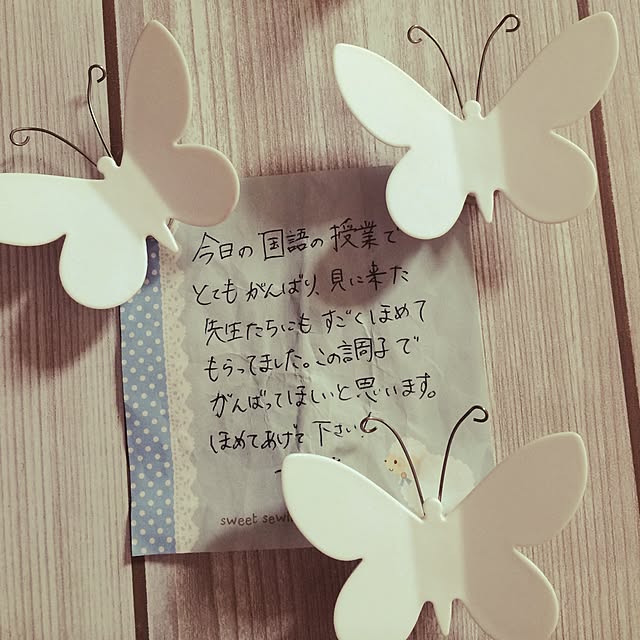 今日の国語の授業で
とてもがんばり、見に来た
先生たちにもすごくほめて
もらってました。この調子で
がんばってほしいと思います。
ほめてあげて下さい!
sweet